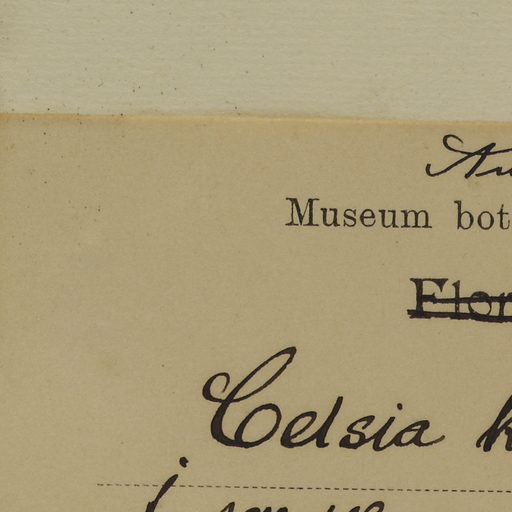 Museum bot
Flor
Celsia k